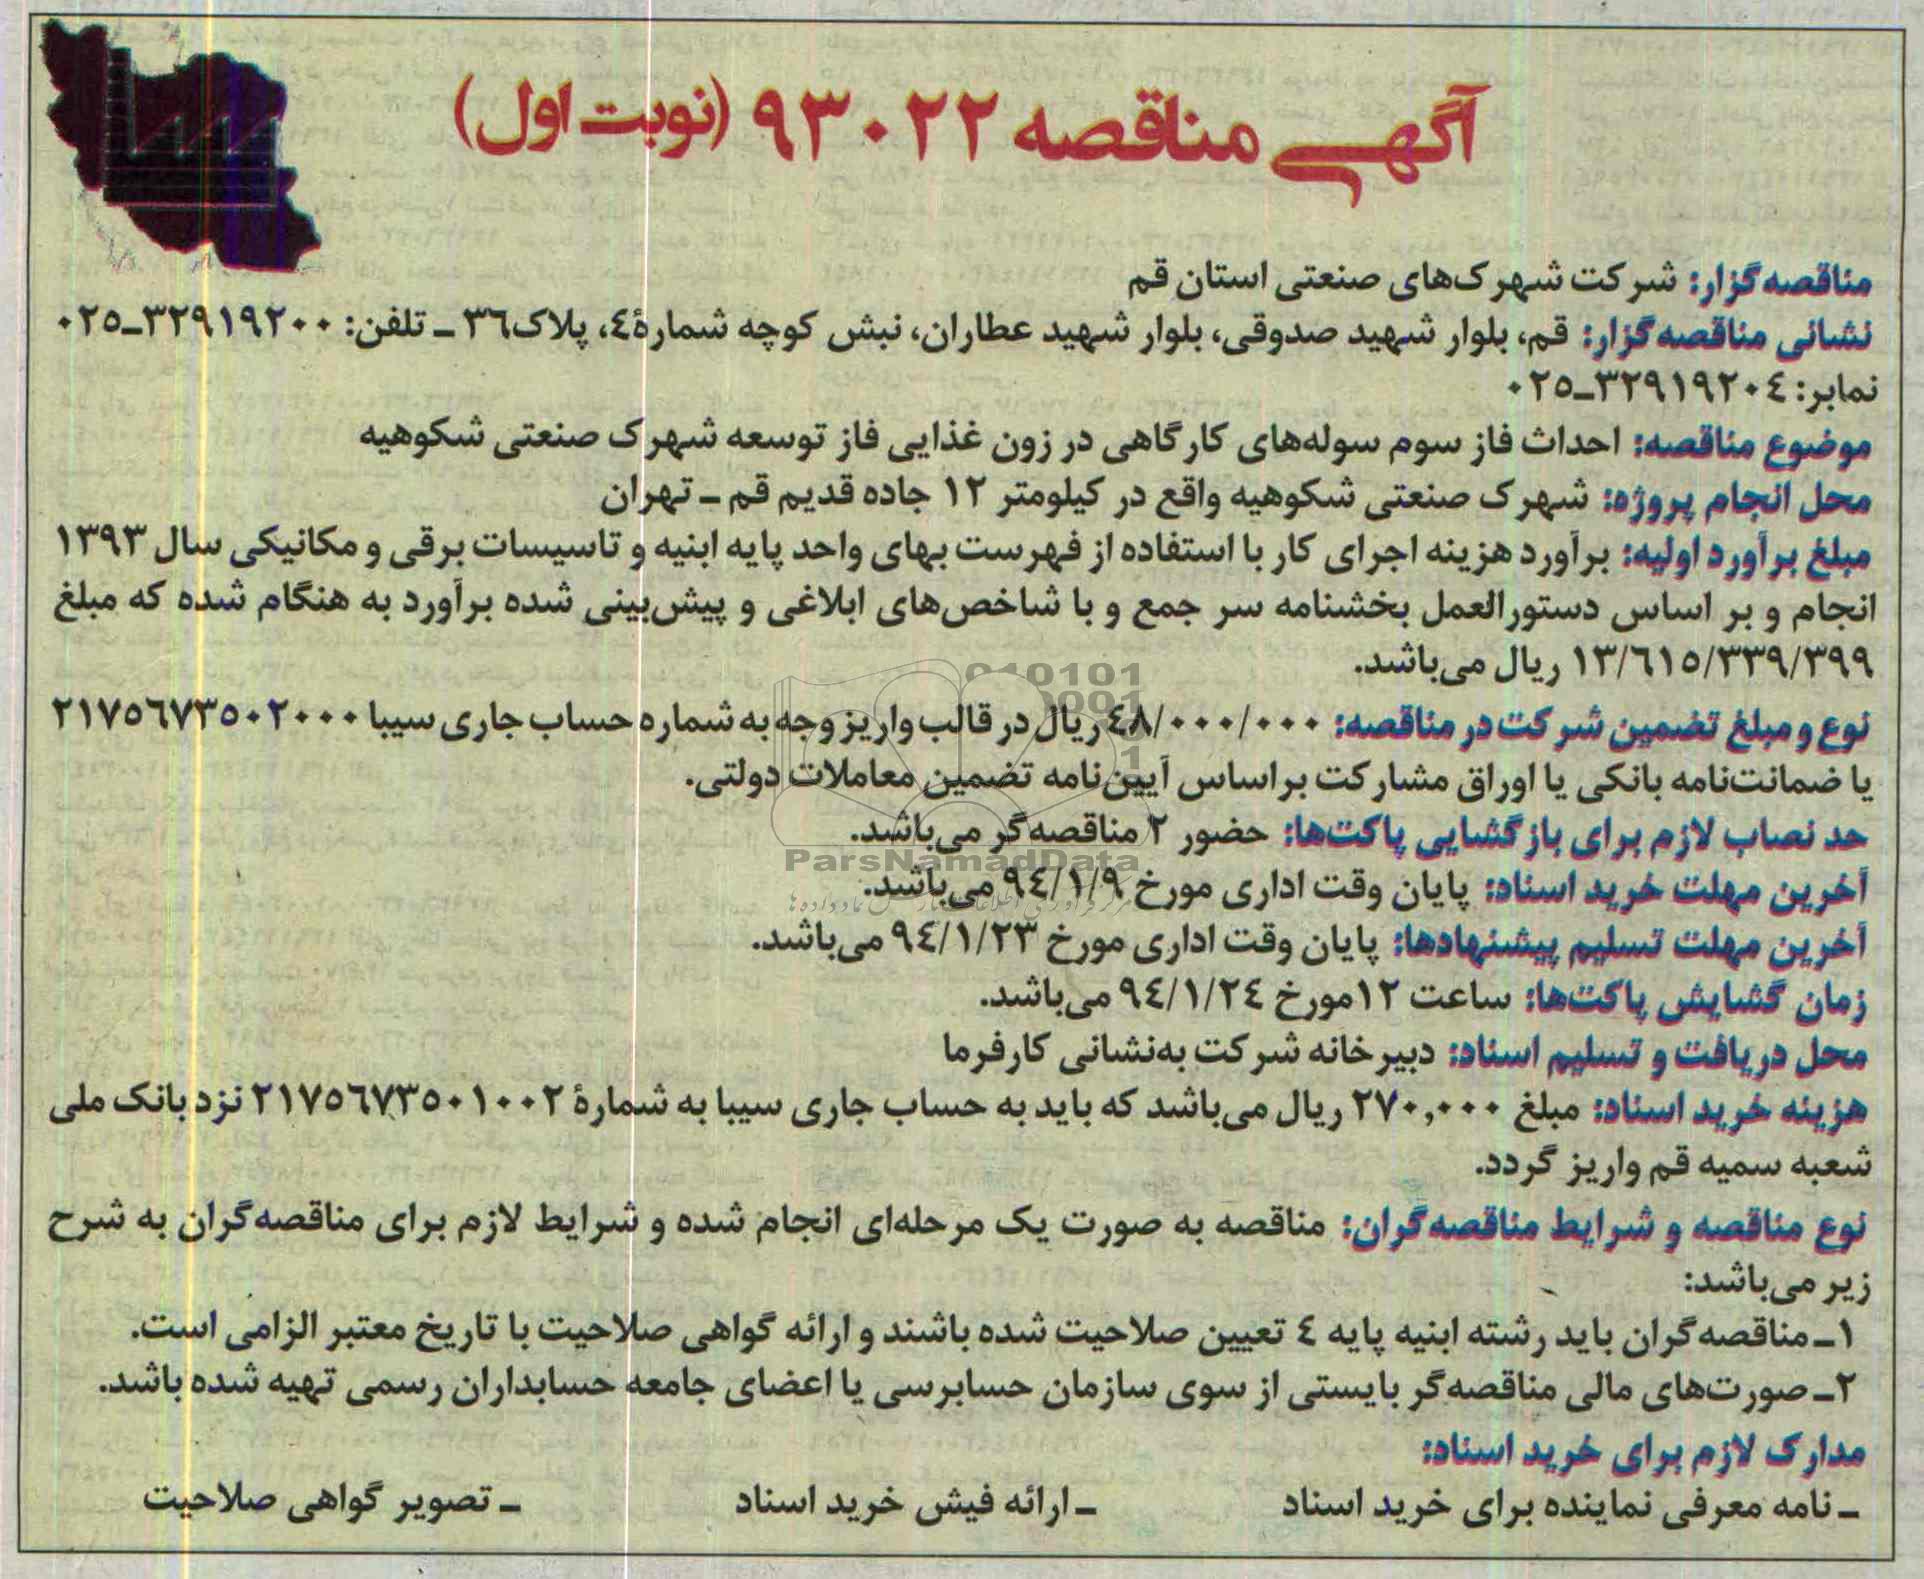 آگهی مناقصه ۹۳۰۲۲ (نوبت اول)
مناقصه‌گزار: شرکت شهرک‌های صنعتی استان قم
نشانی مناقصه‌گزار: قم، بلوار شهید صدوقی، بلوار شهید عطاران، نبش کوچه شمارهٔ ٤، پلاک ۳٦ ـ تلفن: ۳۲۹۱۹۲۰۰ـ۰۲٥
نمابر: ۳۲۹۱۹۲۰٤ـ۰۲٥
موضوع مناقصه: احداث فاز سوم سوله‌های کارگاهی در زون غذایی فاز توسعه شهرک صنعتی شکوهیه
محل انجام پروژه: شهرک صنعتی شکوهیه واقع در کیلومتر ۱۲ جاده قدیم قم ـ تهران
مبلغ برآورد اولیه: برآورد هزینه اجرای کار با استفاده از فهرست بهای واحد پایه ابنیه و تاسیسات برقی و مکانیکی سال ۱۳۹۳
انجام و بر اساس دستورالعمل بخشنامه سر جمع و با شاخص‌های ابلاغی و پیش‌بینی شده برآورد به هنگام شده که مبلغ
۱۳/٦۱٥/۳۳۹/۳۹۹ ریال می‌باشد.
نوع و مبلغ تضمین شرکت در مناقصه: ٤۸/۰۰۰/۰۰۰ ریال در قالب واریز وجه به شماره حساب جاری سیبا ۲۱۷٥٦۷۳٥۰۲۰۰۰
یا ضمانت‌نامه بانکی یا اوراق مشارکت براساس آیین‌نامه تضمین معاملات دولتی.
حد نصاب لازم برای بازگشایی پاکت‌ها: حضور ۲ مناقصه‌گر می‌باشد.
ParsNamadData
آخرین مهلت خرید اسناد: پایان وقت اداری مورخ ۹٤/۱/۹ می‌باشد.
آخرین مهلت تسلیم پیشنهادها: پایان وقت اداری مورخ ۹٤/۱/۲۳ می‌باشد.
زمان گشایش پاکت‌ها: ساعت ۱۲مورخ ۹٤/۱/۲٤ می‌باشد.
محل دریافت و تسلیم اسناد: دبیرخانه شرکت به‌نشانی کارفرما
هزینه خرید اسناد: مبلغ ۲۷۰,۰۰۰ ریال می‌باشد که باید به حساب جاری سیبا به شمارهٔ ۲۱۷٥٦۷۳٥۰۱۰۰۲ نزد بانک ملی
شعبه سمیه قم واریز گردد.
نوع مناقصه و شرایط مناقصه‌گران: مناقصه به صورت یک مرحله‌ای انجام شده و شرایط لازم برای مناقصه‌گران به شرح
زیر می‌باشد:
۱ـ مناقصه‌گران باید رشته ابنیه پایه ٤ تعیین صلاحیت شده باشند و ارائه گواهی صلاحیت با تاریخ معتبر الزامی است.
۲ـ صورت‌های مالی مناقصه‌گر بایستی از سوی سازمان حسابرسی یا اعضای جامعه حسابداران رسمی تهیه شده باشد.
مدارک لازم برای خرید اسناد:
ـ نامه معرفی نماینده برای خرید اسناد ـ ارائه فیش خرید اسناد ـ تصویر گواهی صلاحیت